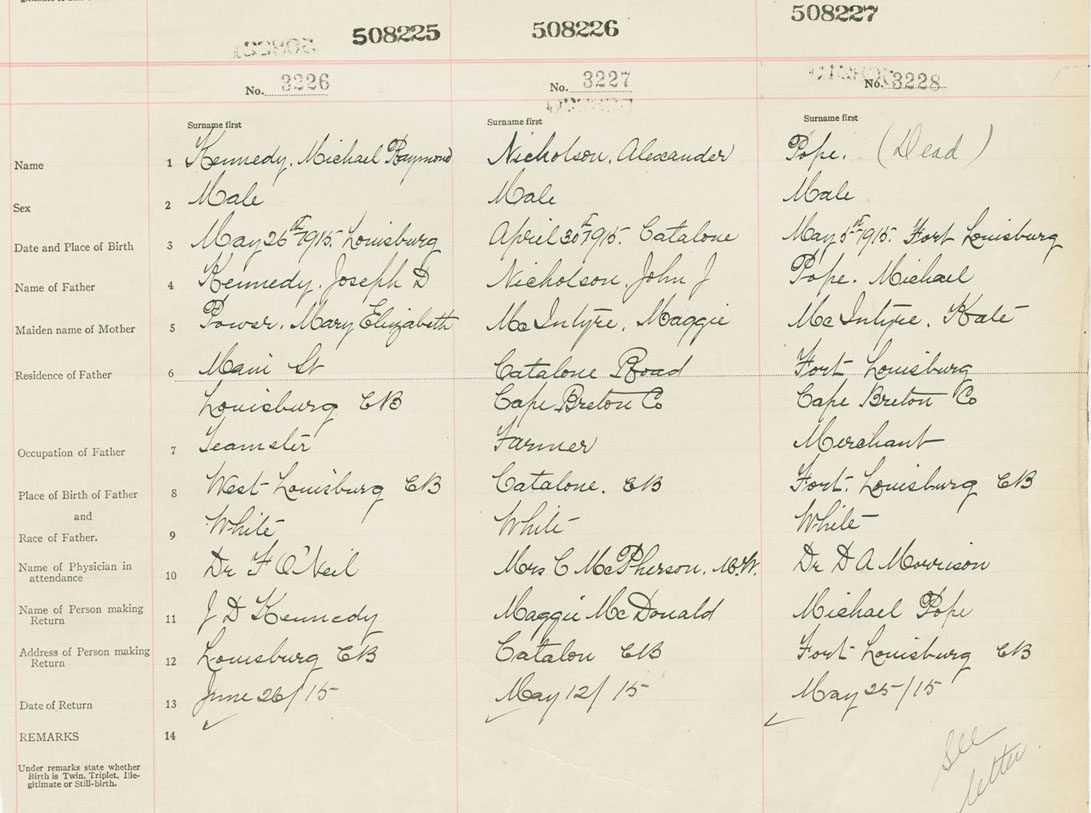 508225 508226 508227
No. 3226 No. 3227 No. 3228
Surname first Surname first Surname first
Name 1 Kennedy, Michael Raymond Nicholson, Alexander Pope. (Dead)
Sex 2 Male Male Male
Date and Place of Birth 3 May 26th 1915. Louisburg April 30th 1915. Catalone May 5th 1915. Fort Louisburg
Name of Father 4 Kennedy, Joseph D Nicholson, John J Pope. Michael
Maiden name of Mother 5 Power, Mary Elizabeth McIntyre, Maggie McIntyre, Kate
Residence of Father 6 Main St Catalone Road Fort Louisburg
Louisburg CB Cape Breton Co Cape Breton Co
Occupation of Father 7 Teamster Farmer Merchant
Place of Birth of Father 8 West Louisburg CB Catalone. CB Fort. Louisburg CB
and
Race of Father. 9 White White White
Name of Physician in
attendance 10 Dr F O'Neil Mrs C McPherson, M.W. Dr D A Morrison
Name of Person making
Return 11 J D Kennedy Maggie McDonald Michael Pope
Address of Person making
Return 12 Louisburg CB Catalon CB Fort Louisburg CB
Date of Return 13 June 26/15 May 12/15 May 25/15
REMARKS 14
Under remarks state whether
Birth is Twin, Triplet, Ille-
gitimate or Still-birth.
See
letter